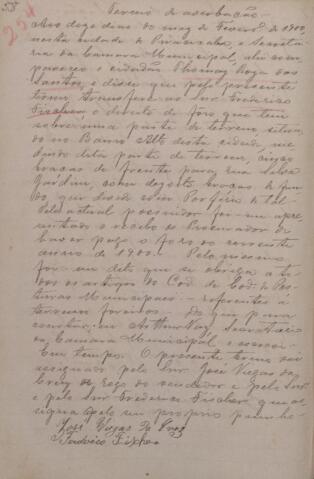 58
254
Termo de averbação
Aos doze dias do mez de Fevereiro de 1900,
nesta cidade de Piracicaba, e Secretaria
da Camara Municipal, ahi compareceu
o cidadão Thomaz Roza dos
Santos, e disse que pelo presente
termo transfere ao snr Frederico
Fischer o direito de fôro que tem
sobre uma parte de terreno, situado
no Bairro Alto desta cidade, medindo
dita parte de terreno, cinco
braças de frente para rua Silva
Jardim, com dezoito braças de fundo,
que divide com Porfirio de tal.
Pelo actual possuidor foi-me apresentado
o recibo do Procurador de
haver pago o foro do corrente
anno de 1900. Pelo mesmo
foi-me dito que se obriga a todos
os artigos do Cod. de Posturas
Municipaes referentes a
terrenos foreiros. Do que para
constar, eu Arthur Vaz, Secretario
da Camara Municipal o escrevi.
Em tempo. O presente termo vai
assignado pelo Snr. José Viegas da
Cruz a rogo do vendedor e pelo Snr
e pelo Snr Frederico Fischer que assigna
pelo seu proprio punho.
José Viegas da Cruz
Fischer